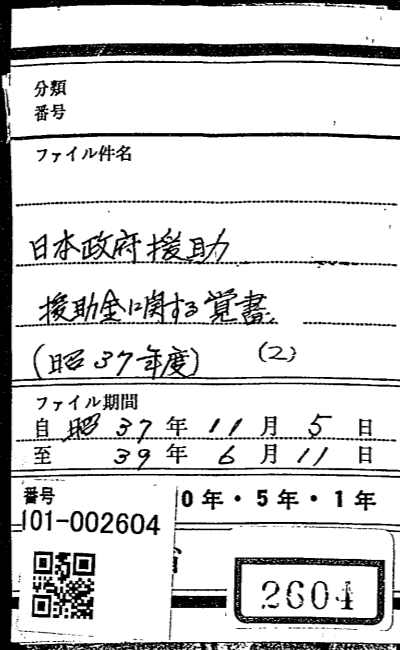 分類
番号
ファイル件名
日本政府援助
援助金に関する覚書
(昭37年度) (2)
ファイル期間
自 昭 37 年 11 月 5 日
至 39 年 6 月 11 日
0年・5年・1年
番号
101-002604
2604